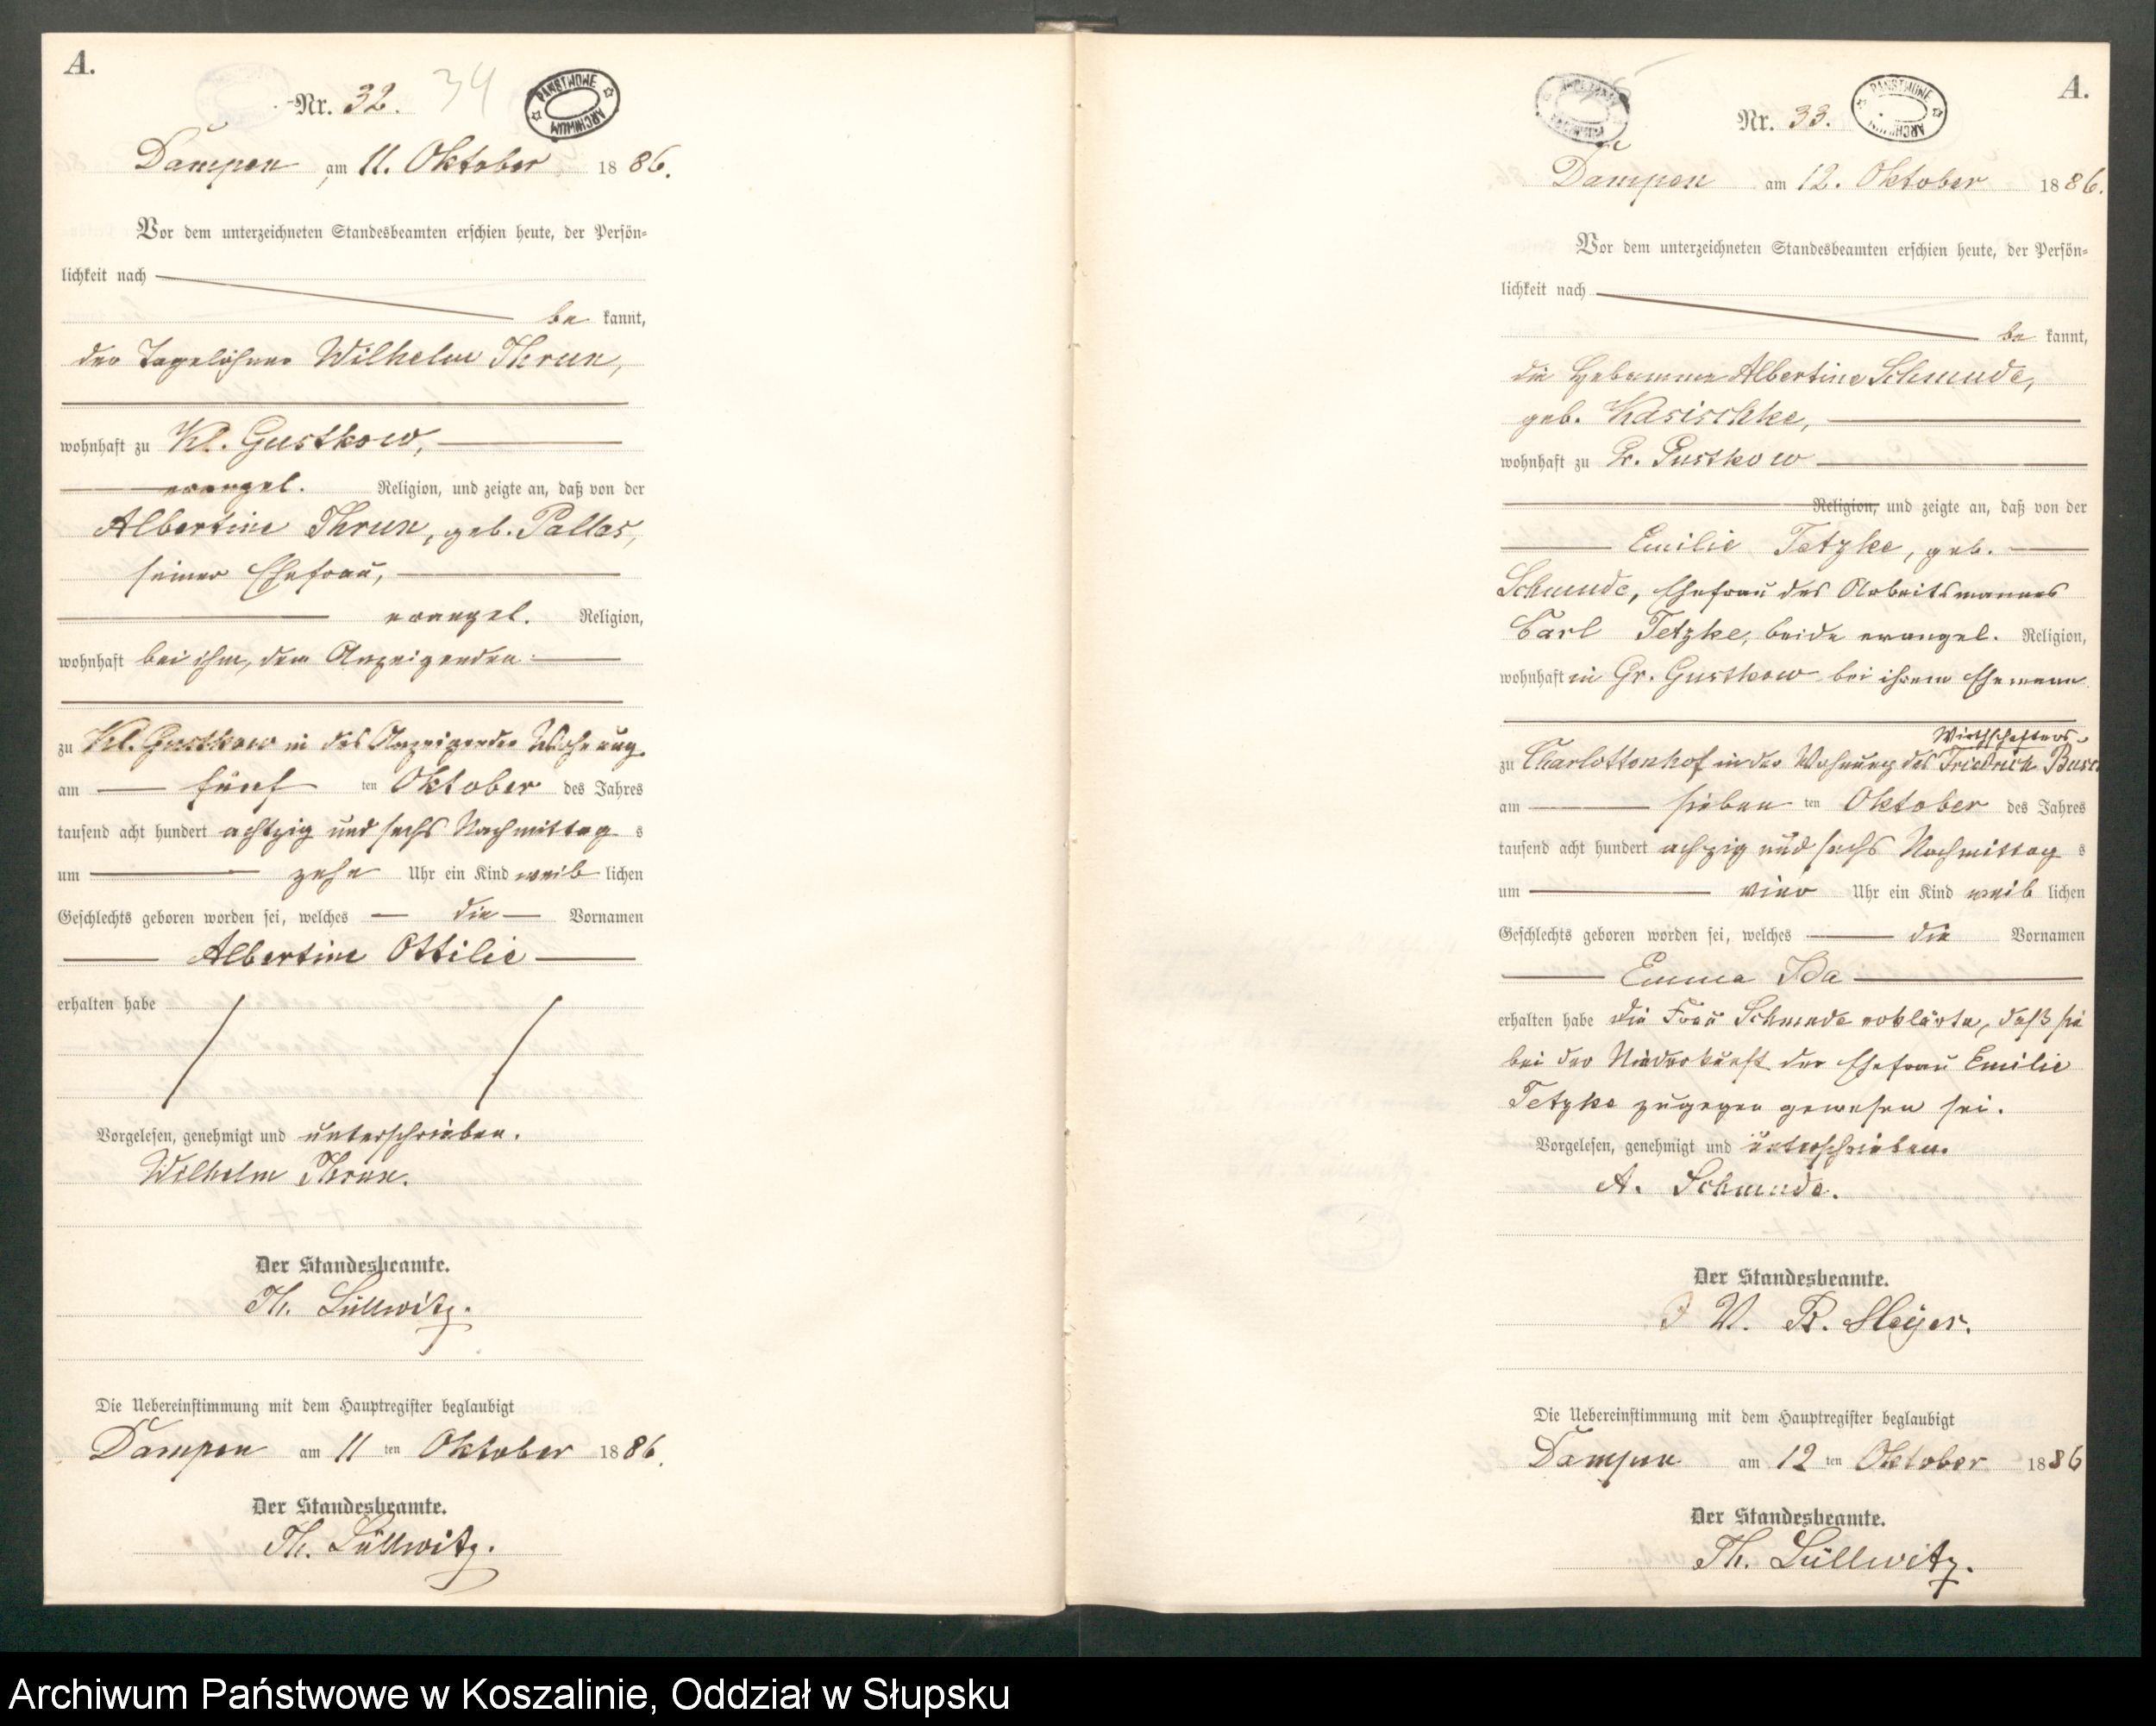 A.
Nr. 32. 34
PAŃSTWOWE ARCHIWUM
Dampen am 11. Oktober 1886.
Vor dem unterzeichneten Standesbeamten erschien heute, der Persön=
lichkeit nach
be kannt,
der Tagelöhner Wilhelm Thrun,
wohnhaft zu Kl. Gustkow,
evangel. Religion, und zeigte an, daß von der
Albertine Thrun, geb. Pallas,
seiner Ehefrau,
evangel. Religion,
wohnhaft bei ihm, dem Anzeigenden
zu Kl. Gustkow in des Anzeigenden Wohnung
am fünf ten Oktober des Jahres
tausend acht hundert achtzig und sechs Nachmittag s
um zehn Uhr ein Kind weib lichen
Geschlechts geboren worden sei, welches die Vornamen
Albertine Ottilie
erhalten habe
Vorgelesen, genehmigt und unterschrieben.
Wilhelm Thrun.
Der Standesbeamte.
Th. Lüllwitz.
Die Uebereinstimmung mit dem Hauptregister beglaubigt
Dampen am 11 ten Oktober 1886.
Der Standesbeamte.
Th. Lüllwitz.
A.
Nr. 33.
PAŃSTWOWE ARCHIWUM
Dampen am 12. Oktober 1886.
Vor dem unterzeichneten Standesbeamten erschien heute, der Persön=
lichkeit nach
be kannt,
die Hebamme Albertine Schmude,
geb. Kasischke,
wohnhaft zu Gr. Gustkow
Religion, und zeigte an, daß von der
Emilie Tetzke, geb.
Schmude, Ehefrau des Arbeitsmannes
Carl Tetzke, beide evangel. Religion,
wohnhaft in Gr. Gustkow bei ihrem Ehemann
Wirthschafters
zu Charlottenhof in der Wohnung des Friedrich Busch
am sieben ten Oktober des Jahres
tausend acht hundert achzig und sechs Nachmittag s
um vier Uhr ein Kind weib lichen
Geschlechts geboren worden sei, welches die Vornamen
Emma Ida
erhalten habe die Frau Schmude erklärte, daß sie
bei der Niederkunft der Ehefrau Emilie
Tetzke zugegen gewesen sei.
Vorgelesen, genehmigt und unterschrieben.
A. Schmude.
Der Standesbeamte.
J V. R. Meyer.
Die Uebereinstimmung mit dem Hauptregister beglaubigt
Dampen am 12 ten Oktober 1886
Der Standesbeamte.
Th. Lüllwitz.
Archiwum Państwowe w Koszalinie, Oddział w Słupsku